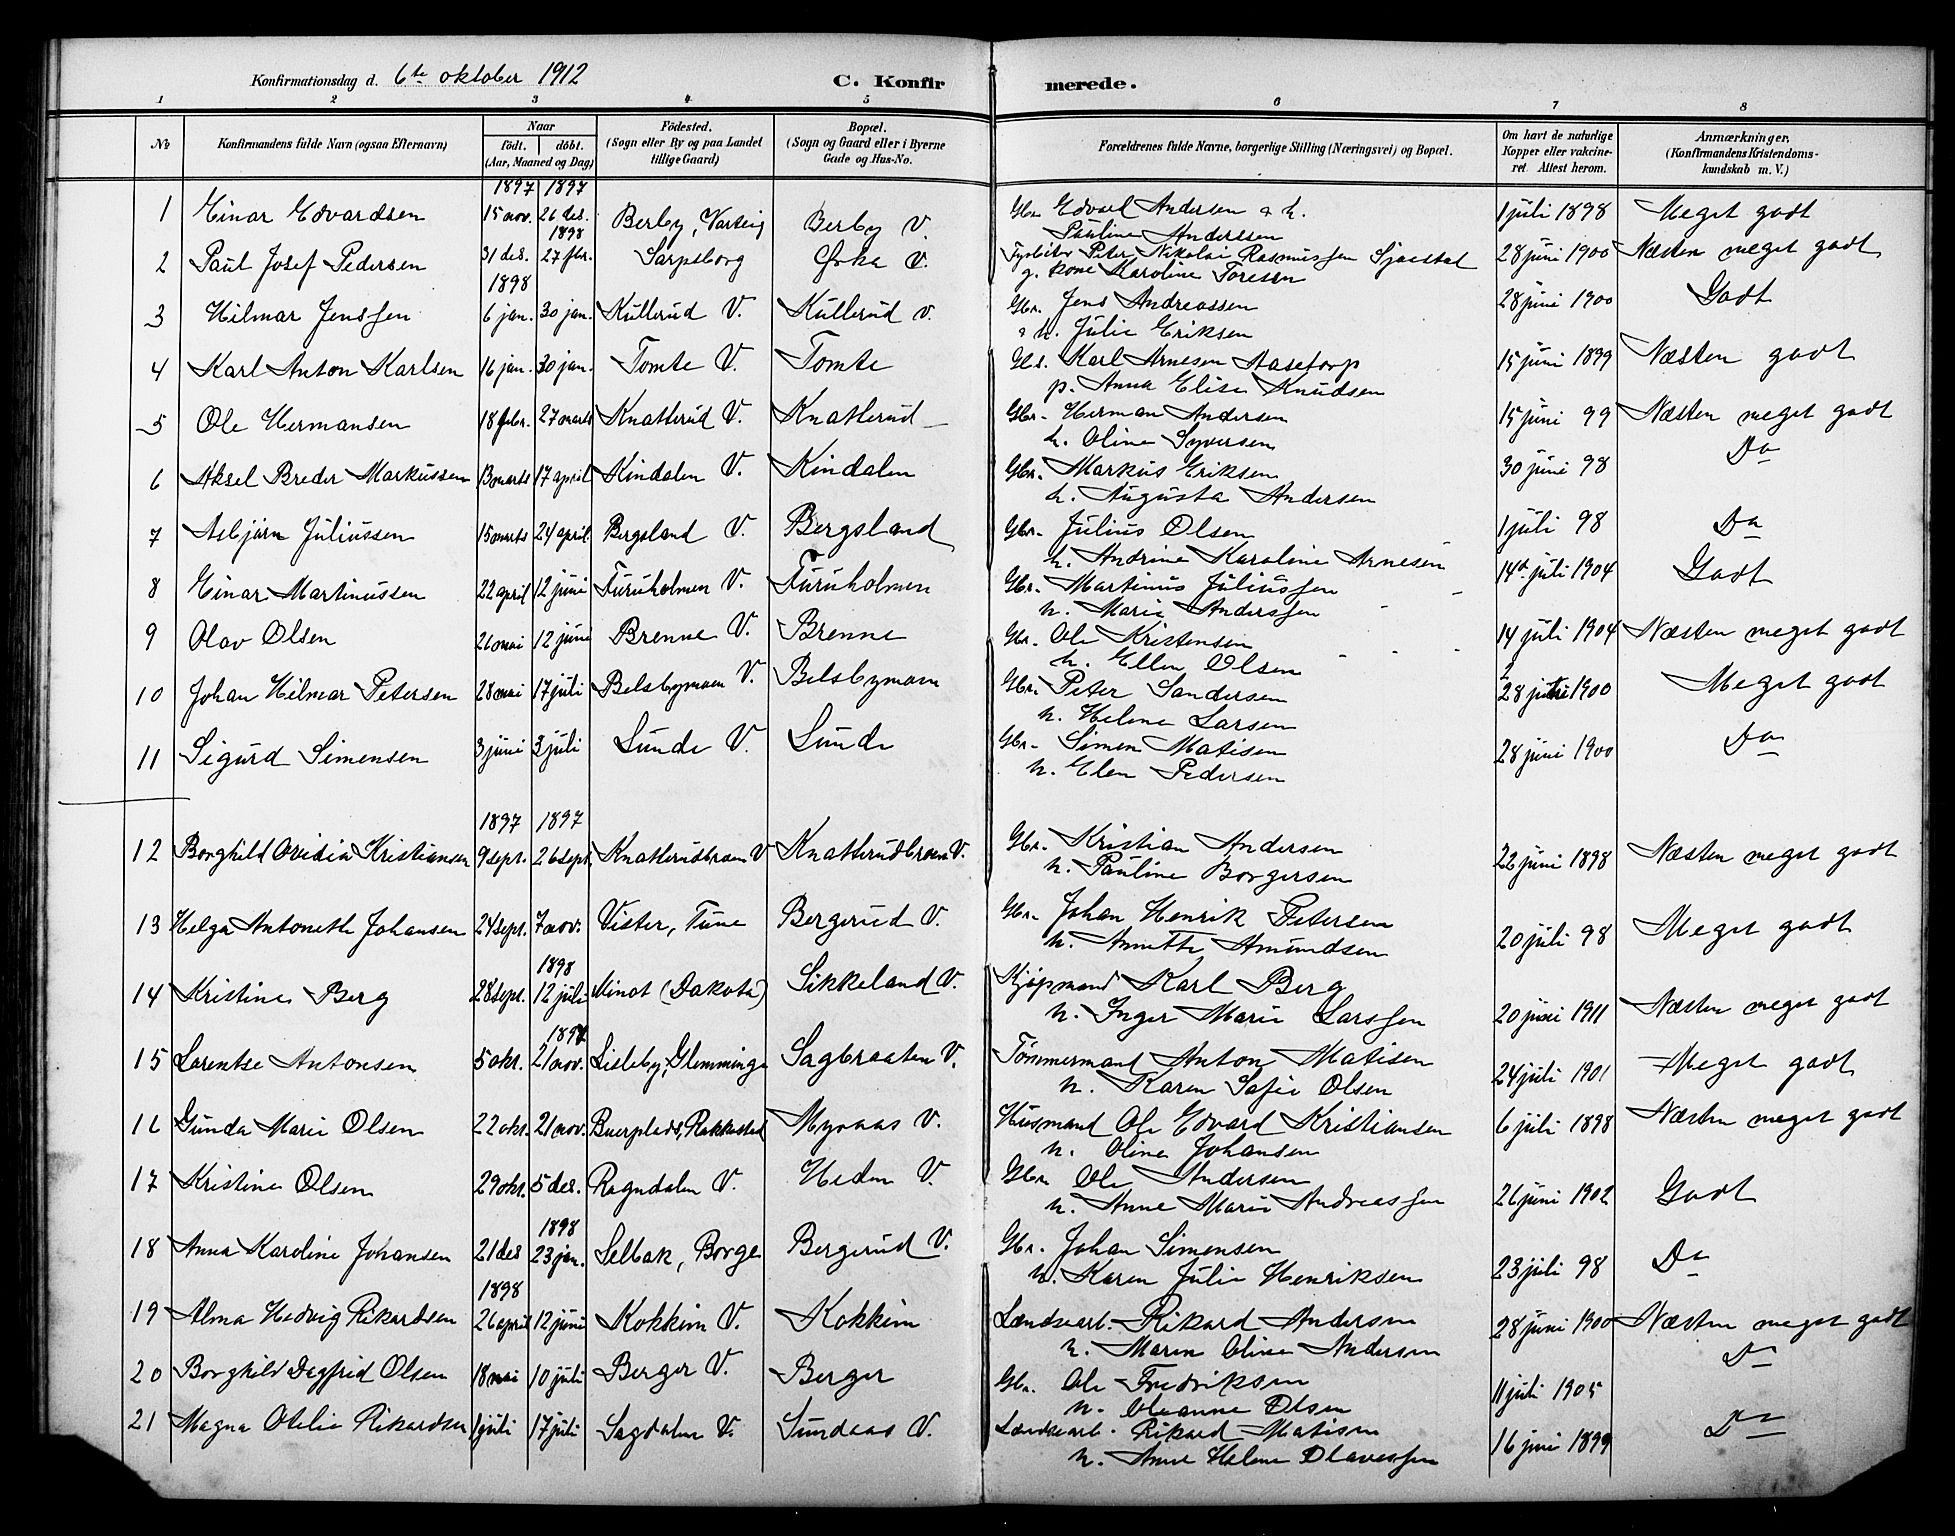 Konfirmationsdag d. 6te oktober 1912 C. Konfirmerede.
1 2 3 4 5 6 7 8
No Konfirmandens fulde Navn (ogsaa Efternavn) Naar födt. döbt. (Aar, Maaned og Dag) Födested. (Sogn eller By og paa Landet tillige Gaard) Bopæl. (Sogn og Gaard eller i Byerne Gade og Hus-No. Forældrenes fulde Navne, borgerlige Stilling (Næringsvei) og Bopæl. Om havt de naturlige Kopper eller vakcineret. Attest herom. Anmærkninger. (Konfirmandens Kristendomskundskab m. V.)
1897 1897
1 Einar Edvardsen 15 nov. 26 des. Berby, Varteig Berby V. Gbr. Edvard Andersen & h. 1 juli 1898 Meget godt
1898 Pauline Andersen
2 Paul Josef Pedersen 31 des. 27 fbr. Sarpsborg V. Peter Nikolai Rasmussen 28 juni 1900 Næsten meget godt
1898 g. kone Karoline Toresen
3 Hilmar Jenssen 6 jan. 30 jan. Kullerud V. Kullerud V. Gbr. Jens Andreassen 28 juni 1900 Godt
& h. Julie Eriksen
4 Karl Anton Karlsen 16 jan. 30 jan. Tomte V. Tomte Karl Arnesen Aasetorp 15 juni 1899 Næsten godt
p. Anna Elise Knudsen
5 Ole Hermansen 18 febr. 27 marts Knatterud V. Knatterud Gbr. Herman Andersen 15 juni 99 Næsten meget godt
h. Oline Syversen
6 Aksel Breder Markussen 13 marts 17 april Kindalen V. Kindalen Gbr. Markus Eriksen 30 juni 98 Do
h. Augusta Andersen
7 Asbjørn Juliussen 15 marts 24 april Bergsland V. Bergsland Gbr. Julius Olsen 1 juli 98 Do
h. Andrine Karoline Arnesen
8 Einar Martinussen 22 april 12 juni Furuholmen V. Furuholmen Gbr. Martinus Juliussen 14de juli 1904 Godt
h. Marie Anderssen
9 Olav Olsen 12 juni Brenne V. Brenne Gbr. Ole Kristensen 14 juli 1904 Næsten meget godt
h. Ellen Olsen
10 Johan Hilmar Petersen 28 mai 17 juli Belsbymoen V. Belsbymoen Gbr. Peter Sandersen 28 1900 Meget godt
h. Helene Larsen
11 Sigurd Simensen 3 juni 3 juli Lunde V. Lunde Gbr. Simen Matisen 28 juni 1900 Do
h. Elen Pedersen
1897 1897
12 Borghild Ovidia Kristiansen 9 sept. 26 sept. Knatterudbraaten V Knatterudbraaten V. Gbr. Kristian Andersen 22 juni 1898 Næsten meget godt
h. Pauline Borgersen
13 Helga Antoneth Johansen 24 sept. 7 nov. Vister, Tune Bergerud V. Gbr. Johan Henrik Petersen 20 juli 98 Meget godt
h. Annette Amundsen
1898
14 Kristine Berg 28 sept. 12 juli Minot (Dakota) Sikkeland V. Kjøpmand Karl Berg 20 juni 1911 Næsten meget godt
h. Inger Marie Larssen
1897
15 Lorentse Antonsen 5 okt. 21 nov. Lisleby, Glemminge Sagbraaten V. Tømmermand Anton Matisen 24 juli 1901 Meget godt
h. Karen Sofie Olsen
16 Gunda Marie Olsen 22 okt. 21 nov. Buerplads, Rakkestad Myraas V. Husmand Ole Edvard Kristiansen 6 juli 1898 Næsten meget godt
h. Oline Johansen
17 Kristine Olsen 29 okt. 5 des. Ragndalen V. Heden V. Gbr Ole Andersen 26 juni 1902 Godt
h. Anne Marie Andreassen
1898
18 Anna Karoline Johansen 21 des 23 jan. Selbak, Borge Bergerud V. Gbr. Johan Simensen 23 juli 98 Do
1898 h. Karen Julie Henriksen
19 Alma Hedvig Rikardsen 26 april 12 juni Kokkim V. Kokkim Landsarb. Rikard Andersen 28 juni 1900 Næsten meget godt
h. Maren Oline Andersen
20 Borghild Dagfrid Olsen 18 mai 10 juli Berger V. Berger Gbr. Ole Fredriksen 11 juli 1905 Do
h. Oleanne Olsen
21 Magna Otelie Rikardsen 1 juli 17 juli Sagdalen V. Sundaas V. Landsarb. Rikard Matisen 16 juni 1899 Do
h. Anne Helene Olavessen